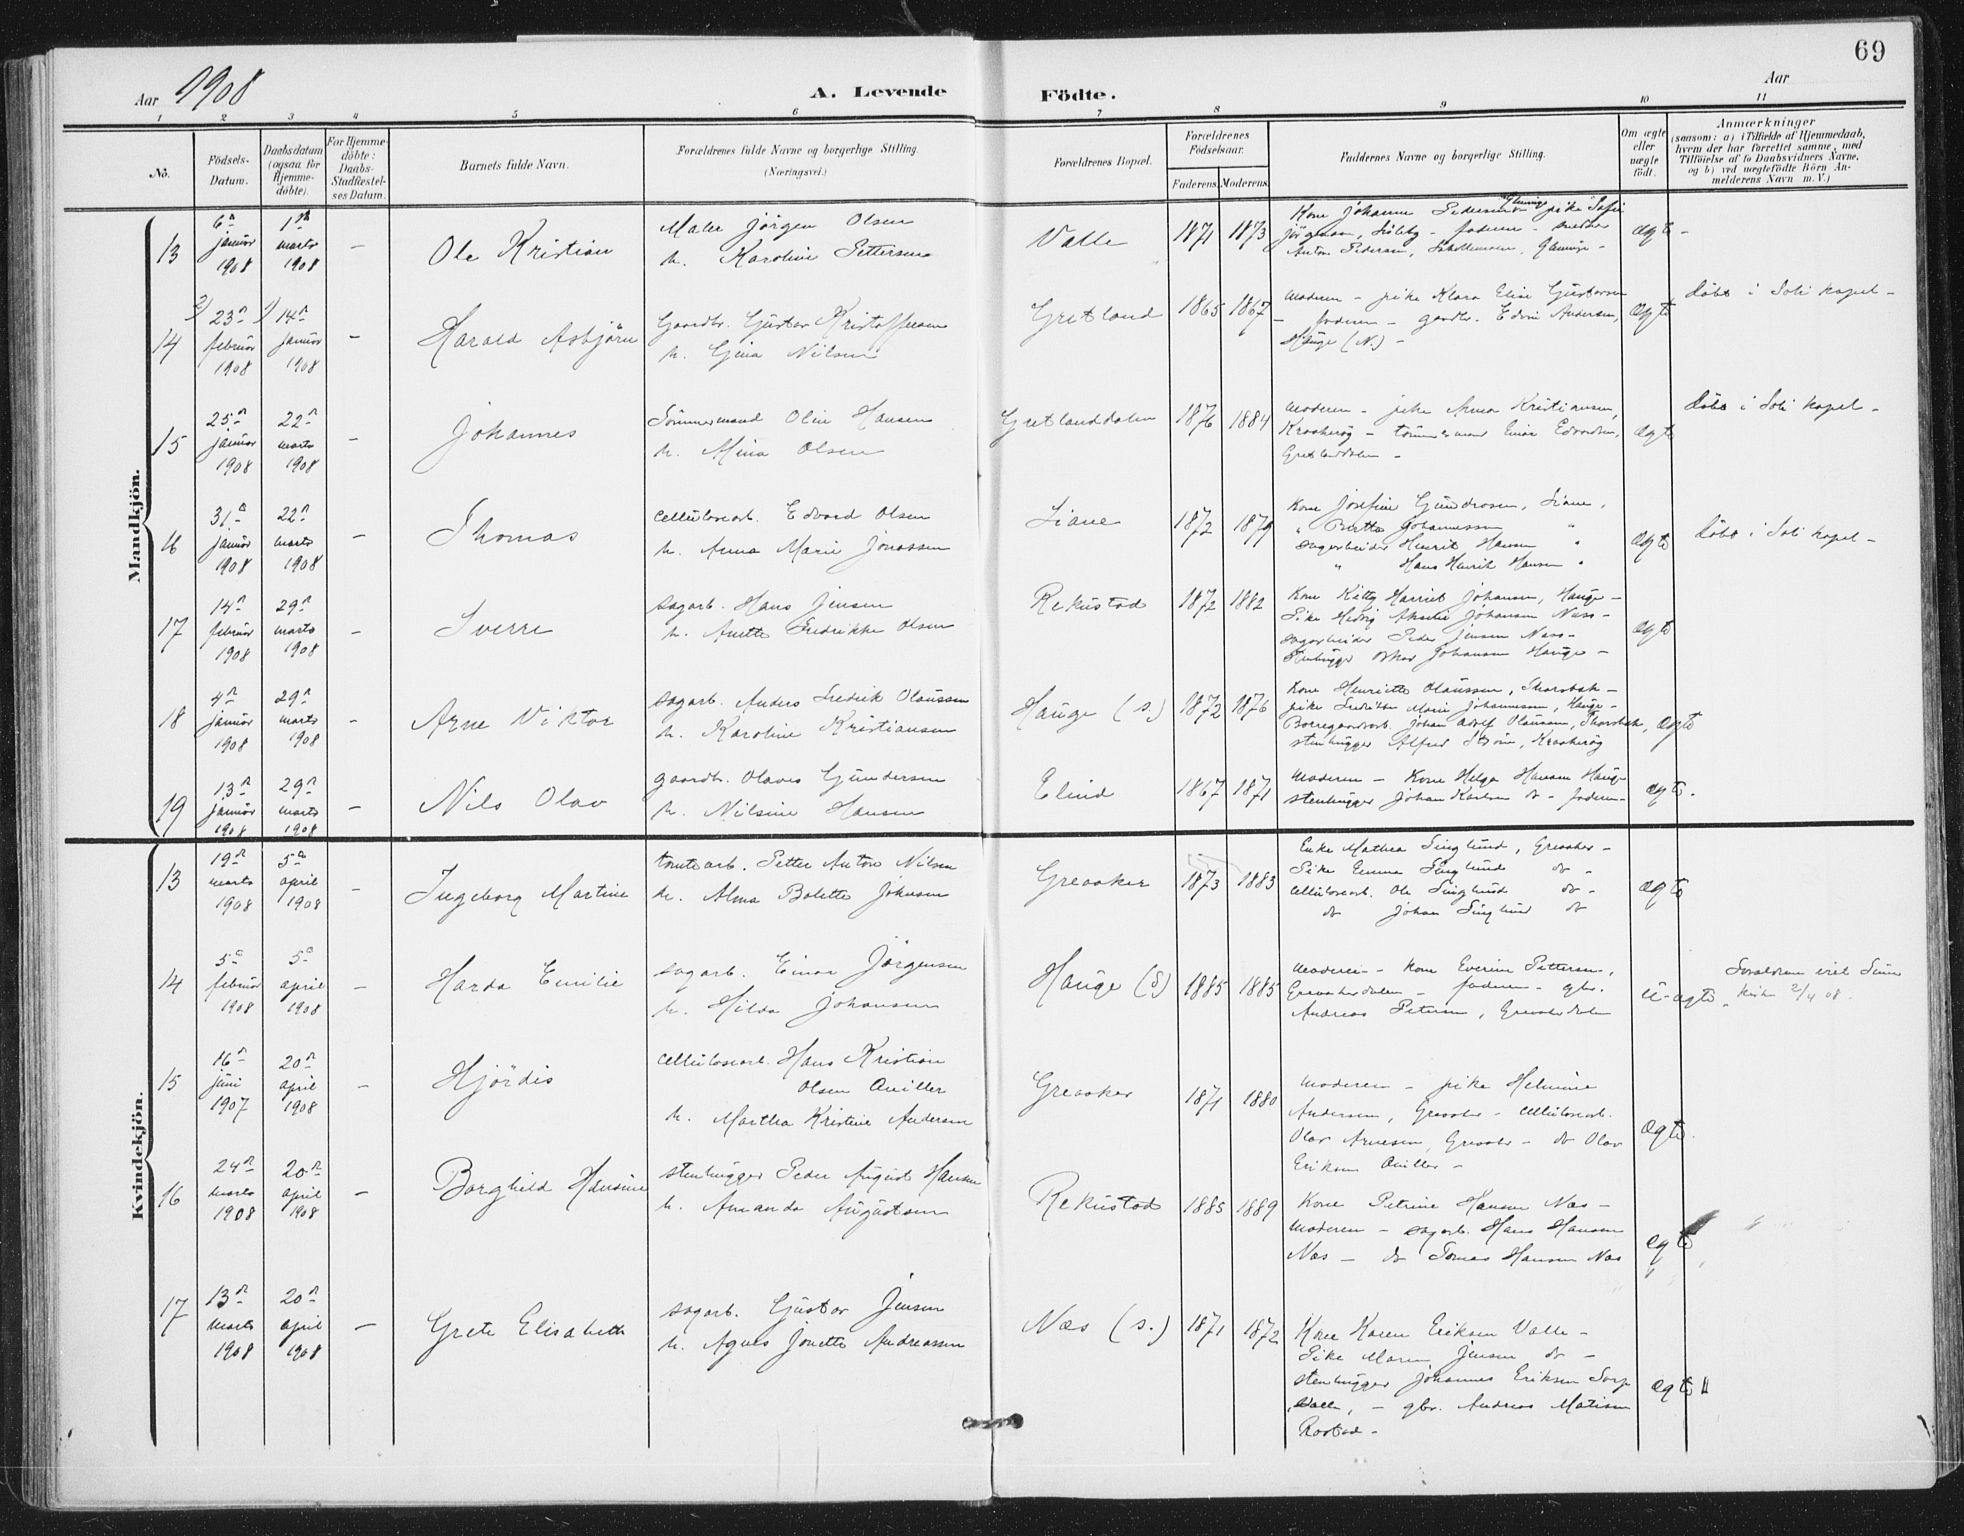 69
Aar 1908
A. Levende Födte.
Aar
1 2 3 4 5 6 7 8 9 10 11
No.
Födsels-
Datum.
Daabsdatum
(ogsaa for
Hjemme-
döbte).
For Hjemme-
döbte:
Daabs-
Stadfæstel-
ses Datum.
Barnets fulde Navn.
Forældrenes fulde Navne og borgerlige Stilling.
(Næringsvei.)
Forældrenes Bopæl.
Forældrenes
Födselsaar.
Faderens. Moderens.
Faddernes Navne og borgerlige Stilling.
Om ægte
eller
uægte
födt.
Anmærkninger
(saasom: a) i Tilfælde af Hjemmedaab,
hvem der har forrettet samme, med
Tilföielse af to Daabsvidners Navne,
og b) ved uægtefödte Börn An-
melderens Navn m. V.)
Mandkjön.
13
6
januar
1908
1
marts
1908
Ole Kristian
Maler Jörgen Olsen
h. Karoline Pettersen
Valle
1871 1873
Kone Johanne Pedersen pike Sofie
Anton Pedersen,
ægte
14
2) 23
februar
1908
1) 14
januar
1908
Harald Asbjörn
Gaardbr. Gustav Kristoffersen
h. Gina Nilsen
Gretland
1865 1867
Moderen - pike Klara Elise Gustavsen
- faderen - gaardbr. Edvin Andersen,
Hauge (N.) -
ægte
döbt i Soli kapel -
15
25
januar
1908
22
marts
1908
Johannes
Tömmermand Olin Hansen
h. Mina Olsen
Gretlanddalen
1876 1884
Moderen - pike Anna Kristiansen,
Kraakerög - tömmermand Einar Edvardsen,
Gretlanddalen -
ægte
döbt i Soli kapel -
16
31
januar
1908
22
marts
1908
Thomas
Cellulosearb. Edvard Olsen
h. Anna Marie Jonassen
Liane
1872 1879
Kone Josefine Gundersen, Liane,
" Berthe Johannessen "
Sagarbeider Henrik Hansen "
" Hans Henrik Hansen "
ægte
döbt i Soli kapel -
17
14
februar
1908
29
marts
1908
Sverre
Sagarb. Hans Jensen
h. Anette Fredrikke Olsen
Rekustad
1872 1882
Kone Kitty Harriet Johansen, Hauge -
Pike Hedvig Johansen Næss -
Sagarbeider Peder Jensen Næss -
Stenhugger Oskar Johansen Hauge -
ægte
18
4
januar
1908
29
marts
1908
Arne Viktor
Sagarb. Anders Fredrik Olaussen
h. Karoline Kristiansen
Hauge (S.)
1872 1876
Kone Henriette Olaussen, Thorsbæk -
pike Fredrikke Marie Johannessen, Hauge -
Borregaardsarb. Johan Adolf Olaussen, Thorsbæk,
stenhugger Alfred Kraakerög
ægte
19
13
januar
1908
29
marts
1908
Nils Olav
gaardbr. Olaves Gundersen
h. Nilsine Hansen
Elind
1867 1871
Moderen - Kone Helga Hansen Hauge
stenhugger Johan Karlsen do - faderen -
ægte.
Kvindekjön.
13
19
marts
1908
5
april
1908
Ingeborg Martine
tomtearb. Petter Anton Nilsen
h. Alma Bolette Johnsen
Greaaker
1873 1883
Enke Mathea Singlund, Greaaker -
Pike Emma Singlund do -
Cellulosearb. Ole Singlund do -
do Johan Singlund do
ægte
14
5
februar
1908
5
april
1908
Harda Emilie
sagarb. Einar Jörgensen
h. Hilda Johansen
Hauge (S)
1885 1885
Moderen - kone Everine Pettersen,
Greaakerdalen - faderen - gbr.
Andreas Petersen, Greaakerdalen
u-ægte.
Forældrene viet
2/4 08.
15
16
juni
1907
20
april
1908
Hjördis
Cellulosearb. Hans Kristian
Olsen Qviller
h. Martha Kristine Andersen
Greaaker
1871 1880
Moderen - pike Helmine
Andersen, Greaaker - Cellulosearb.
Olav Arnesen, Greaaker - do Olav
Eriksen Qviller -
ægte.
16
24
marts
1908
20
april
1908
Borghild Hansine
stenhugger Peder August Hansen
h. Amanda Augustsen
Rekustad
1885 1889
Kone Petrine Hansen Næs -
Moderen - sagarb. Hans Hansen
Næs - do Tomas Hansen Næs
ægte
17
13
marts
1908
20
april
1908
Grete Elisabeth
sagarb. Gustav Jensen
h. Agnes Jonette Andreassen
Næs (S.)
1871 1872
Kone Karen Eriksen Valle -
Pike Maren Jensen do -
stenhugger Johannes Eriksen
Valle, - gbr. Andreas Matisen
Rostad -
ægte